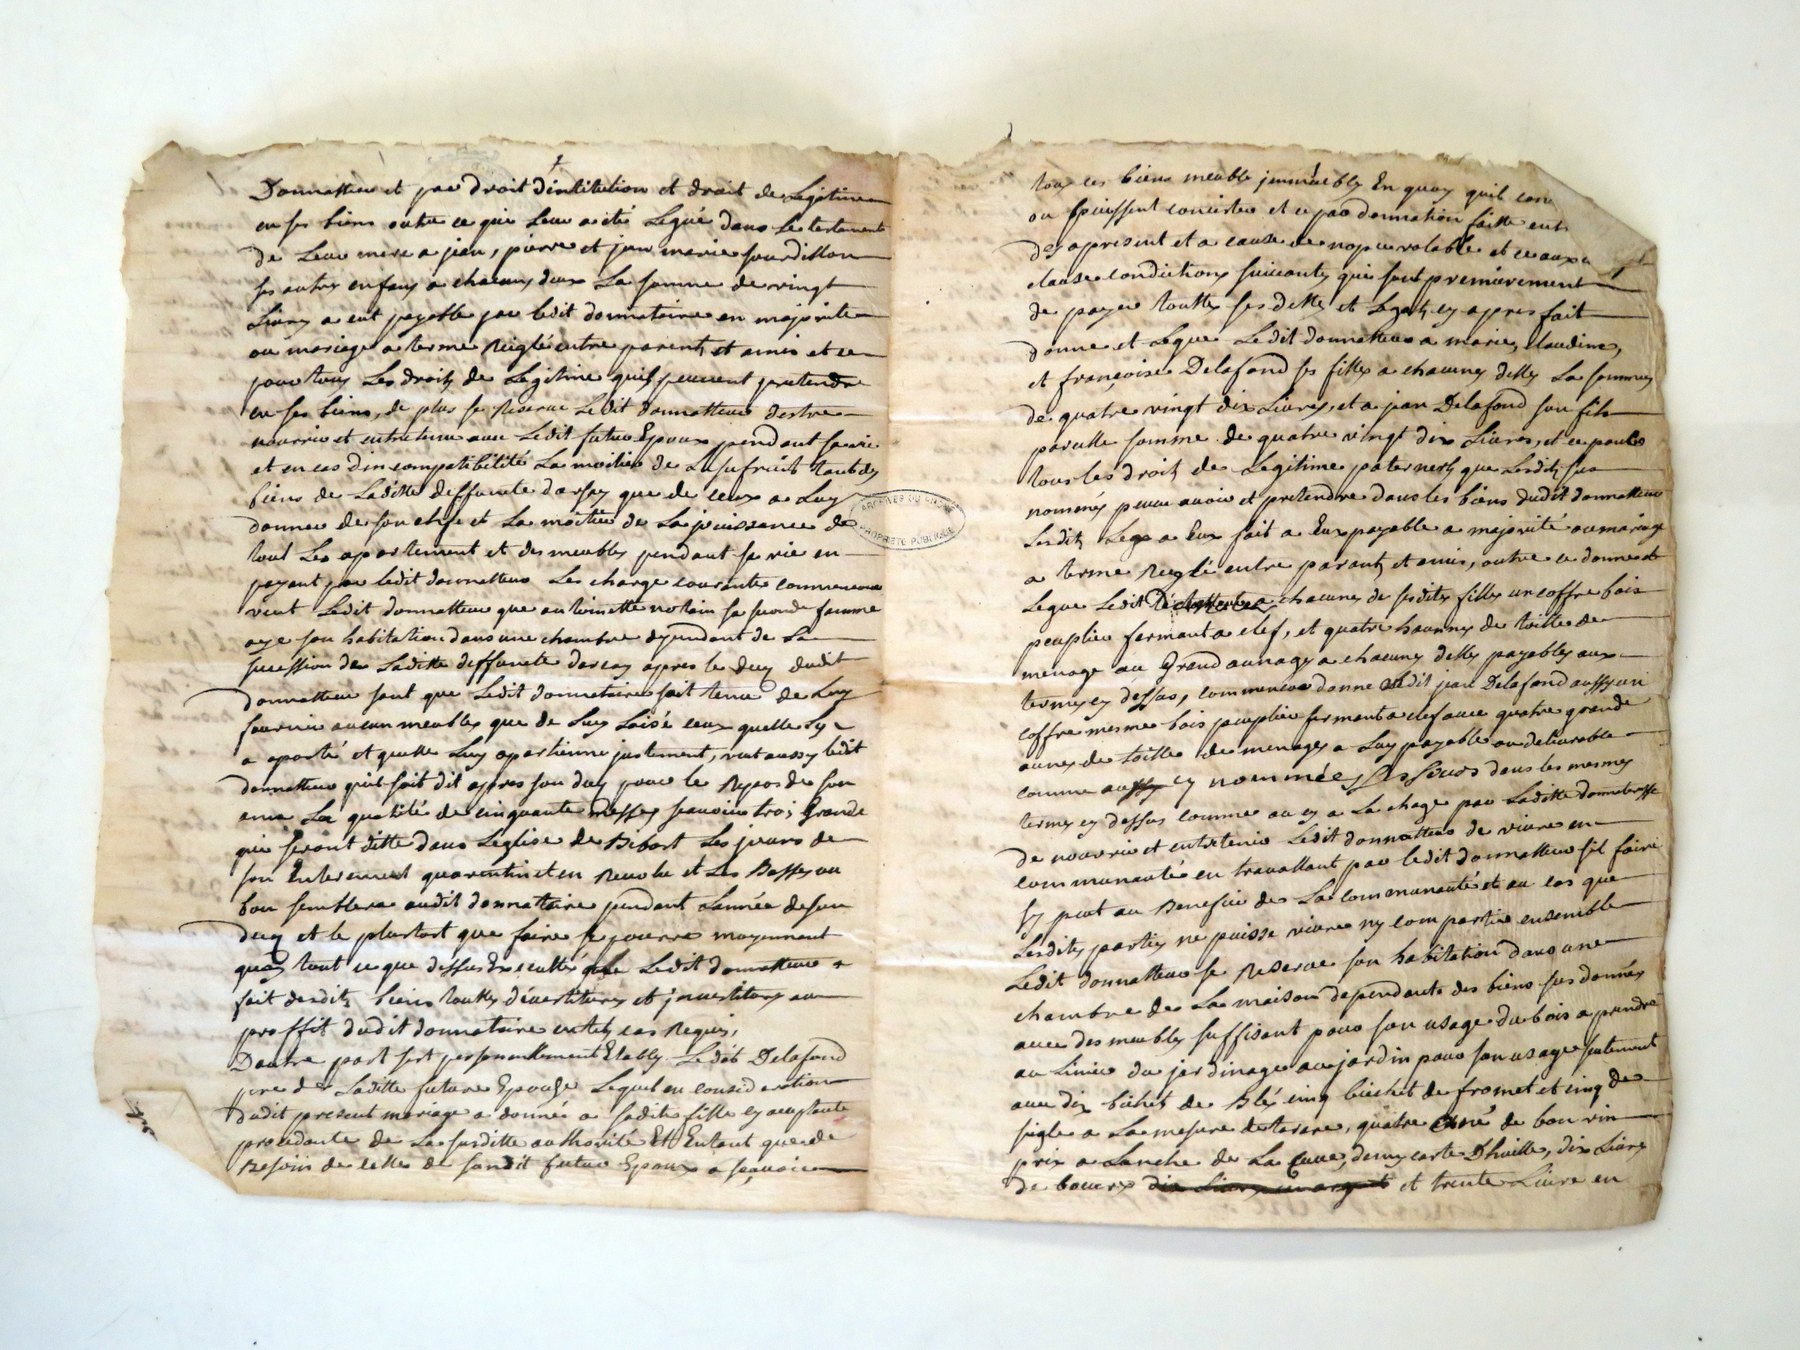 Donnatteur et par droit d'intitution et droit de Legitime
en ses biens outre ce qui Leur a été Legué dans Le testament
de Leur mere a jean, pierre et jean marie sourdillon
ses autres enfans a chacuns deux La somme de vingt
Livres a eut payable par ledit donnataire en majorité
ou mariage a terme Reiglé entre parents et amis et ce
pour tous Les droits de Legitime quils peuvent pretendre
en ses biens, de plus se Reserve Ledit donnatteur destre
nourrie et entretenu avec Ledit futur Epoux pendant sa vie
et en cas dincompatibilité La moitiée de Lusufruit tant des
biens de Laditte deffunte darfay que de ceux a Luy
donnee de son chef et La moitiee de La jouissance de
tout Les apartement et des meubles pendant sa vie en
payant par ledit donnatteur Les charge courante
veut Ledit donnatteur que antoinette notain sa seconde femme
aye son habitation dans une chambre dependant de La
sucession de Laditte deffuncte apres le decez dudit
donnatteur sant que Ledit donnataire soit tenu de Luy
fournir aucun meubles que de Luy Laisé ceux quelle Ly
a aporté et quelle Luy apartienne justement, veut aussy ledit
donnatteur quil soit dit apres son decez pour le Repos de son
ame La quatité de cinquante messes scavoir trois Grande
qui seront ditte dans Leglise de Bibost Les jours de
son Enterement quarentin et en Revolu et Les Basses ou
bon semblera audit donnattaire pendant Lannée de son
decez et le plustost que faire se pourra moyennant
quoy tout ce que dessus Execulté Ledit donnatteur
fait desdits biens touttes dévestitures et jnvestitures au
proffit dudit donnataire en tels cas Requis,
Dautre part sest personnellement Etably Ledit Delafond
pre de Laditte future Epouse Lequel en consideration
dudit present mariage a donnée a saditte fille cy acceptante
procedante de La susditte authorité Et Entant que de
Besoin de celle de sondit futur Epoux a sçavoir
tous ces biens meuble jmmeuble En quoy quil con
ou puissent consister et ce par donnation faitte entr
des apresent et a cause de nopce valable et ce aux
clause condictions suivantes qui sont premierement
de payer touttes ses dette et Legats cy apres fait
donne et Legue Ledit donnatteur a marie, claudine,
et françoise Delafond ses filles a chacunes delles La sommes
de quatre vingt dix Livres, et a jean Delafond son fils
pareille somme de quatre vingt dix Livres, et ce pour
tous les droits de Legitime paternels que Lesdits sus
nommés peuve avoir et pretendre dans les biens dudit donnatteur
Lesdits Legs a Eux fait a Eux payable a majorité ou mariage
a terme Reglé entre parants et amis, outre ce donne et
Legue Ledit a chacunes de sesdites filles un coffre bois
peuplier fermant a clef, et quatre haunnes de toille de
menage au Grand aunage a chacunes delles payables aux
termes cy dessus, comme donne Ledit jean Delafond aussy un
coffre mesme bois peuplier fermant a clef avec quatre grande
aunes de toille de menages a Luy payable ou delivrable
comme aussy cy nommées ses seurs dans les mesmes
termes cy dessus comme a La charge par Laditte donnatresse
de nourrir et entretenir Ledit donnatteur de vivre en
communauté en travaillant par ledit donnatteur sil faire
sy peut au Benefice de La communauté et au cas que
Lesdittes parties ne puisse vivre ny compartir ensemble
Ledit donnatteur se Reserve son habitation dans une
chambre de La maison dependante des biens ses donnés
avec des meubles suffisant pour son usage du bois a prendre
au Linier du jardinage au jardin pour son usage seulement
avec dix bichet de Blé cinq bichet de froment et cinq de
sigle a La mesure de tarare, quatre de bon vin
prix a Lanche de La Cuve, demy carte Dhuille, dix Livres
de beurre dix Livres en argent et trente Livre en
ARCHIVES DU RHONE
PROPRIETE PUBLIQUE